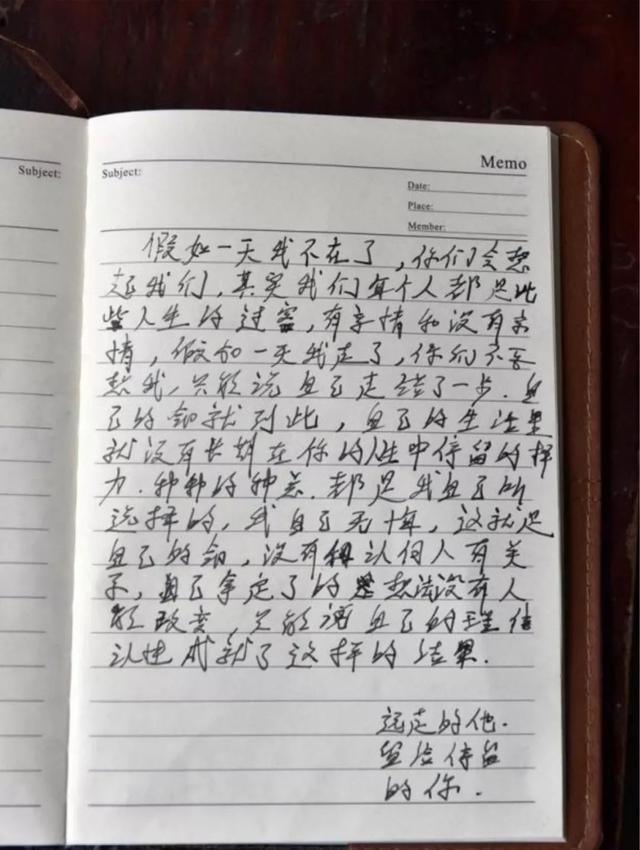 Subject:
Subject:
Memo
Date:
Place:
Member:
假如一天我不在了，你们会想
起我们，其实我们每个人都是此
些人生的过客，有亲情和没有亲
情，假如一天我走了，你们不要
想我，只能说自己走错了一步．自
己的命就到此，自己的生活里
就没有长期在你的人生中停留的择
力．种种的种差．都是我自己所
选择的，我自己无悔，这就是
自己的命，没有和认何人有关
系，自己拿定了的想法没有人
能改变，只能谓自己的理信
认性成就了这择的结果．
远走的他．
留给停留
的你．